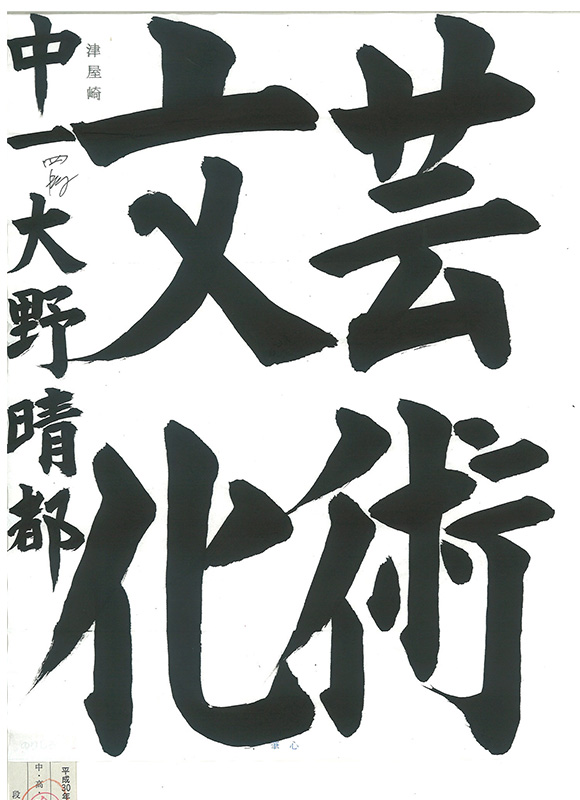 芸術
文化
津屋崎
中一大野晴都
心
平成30年
中・高・
段